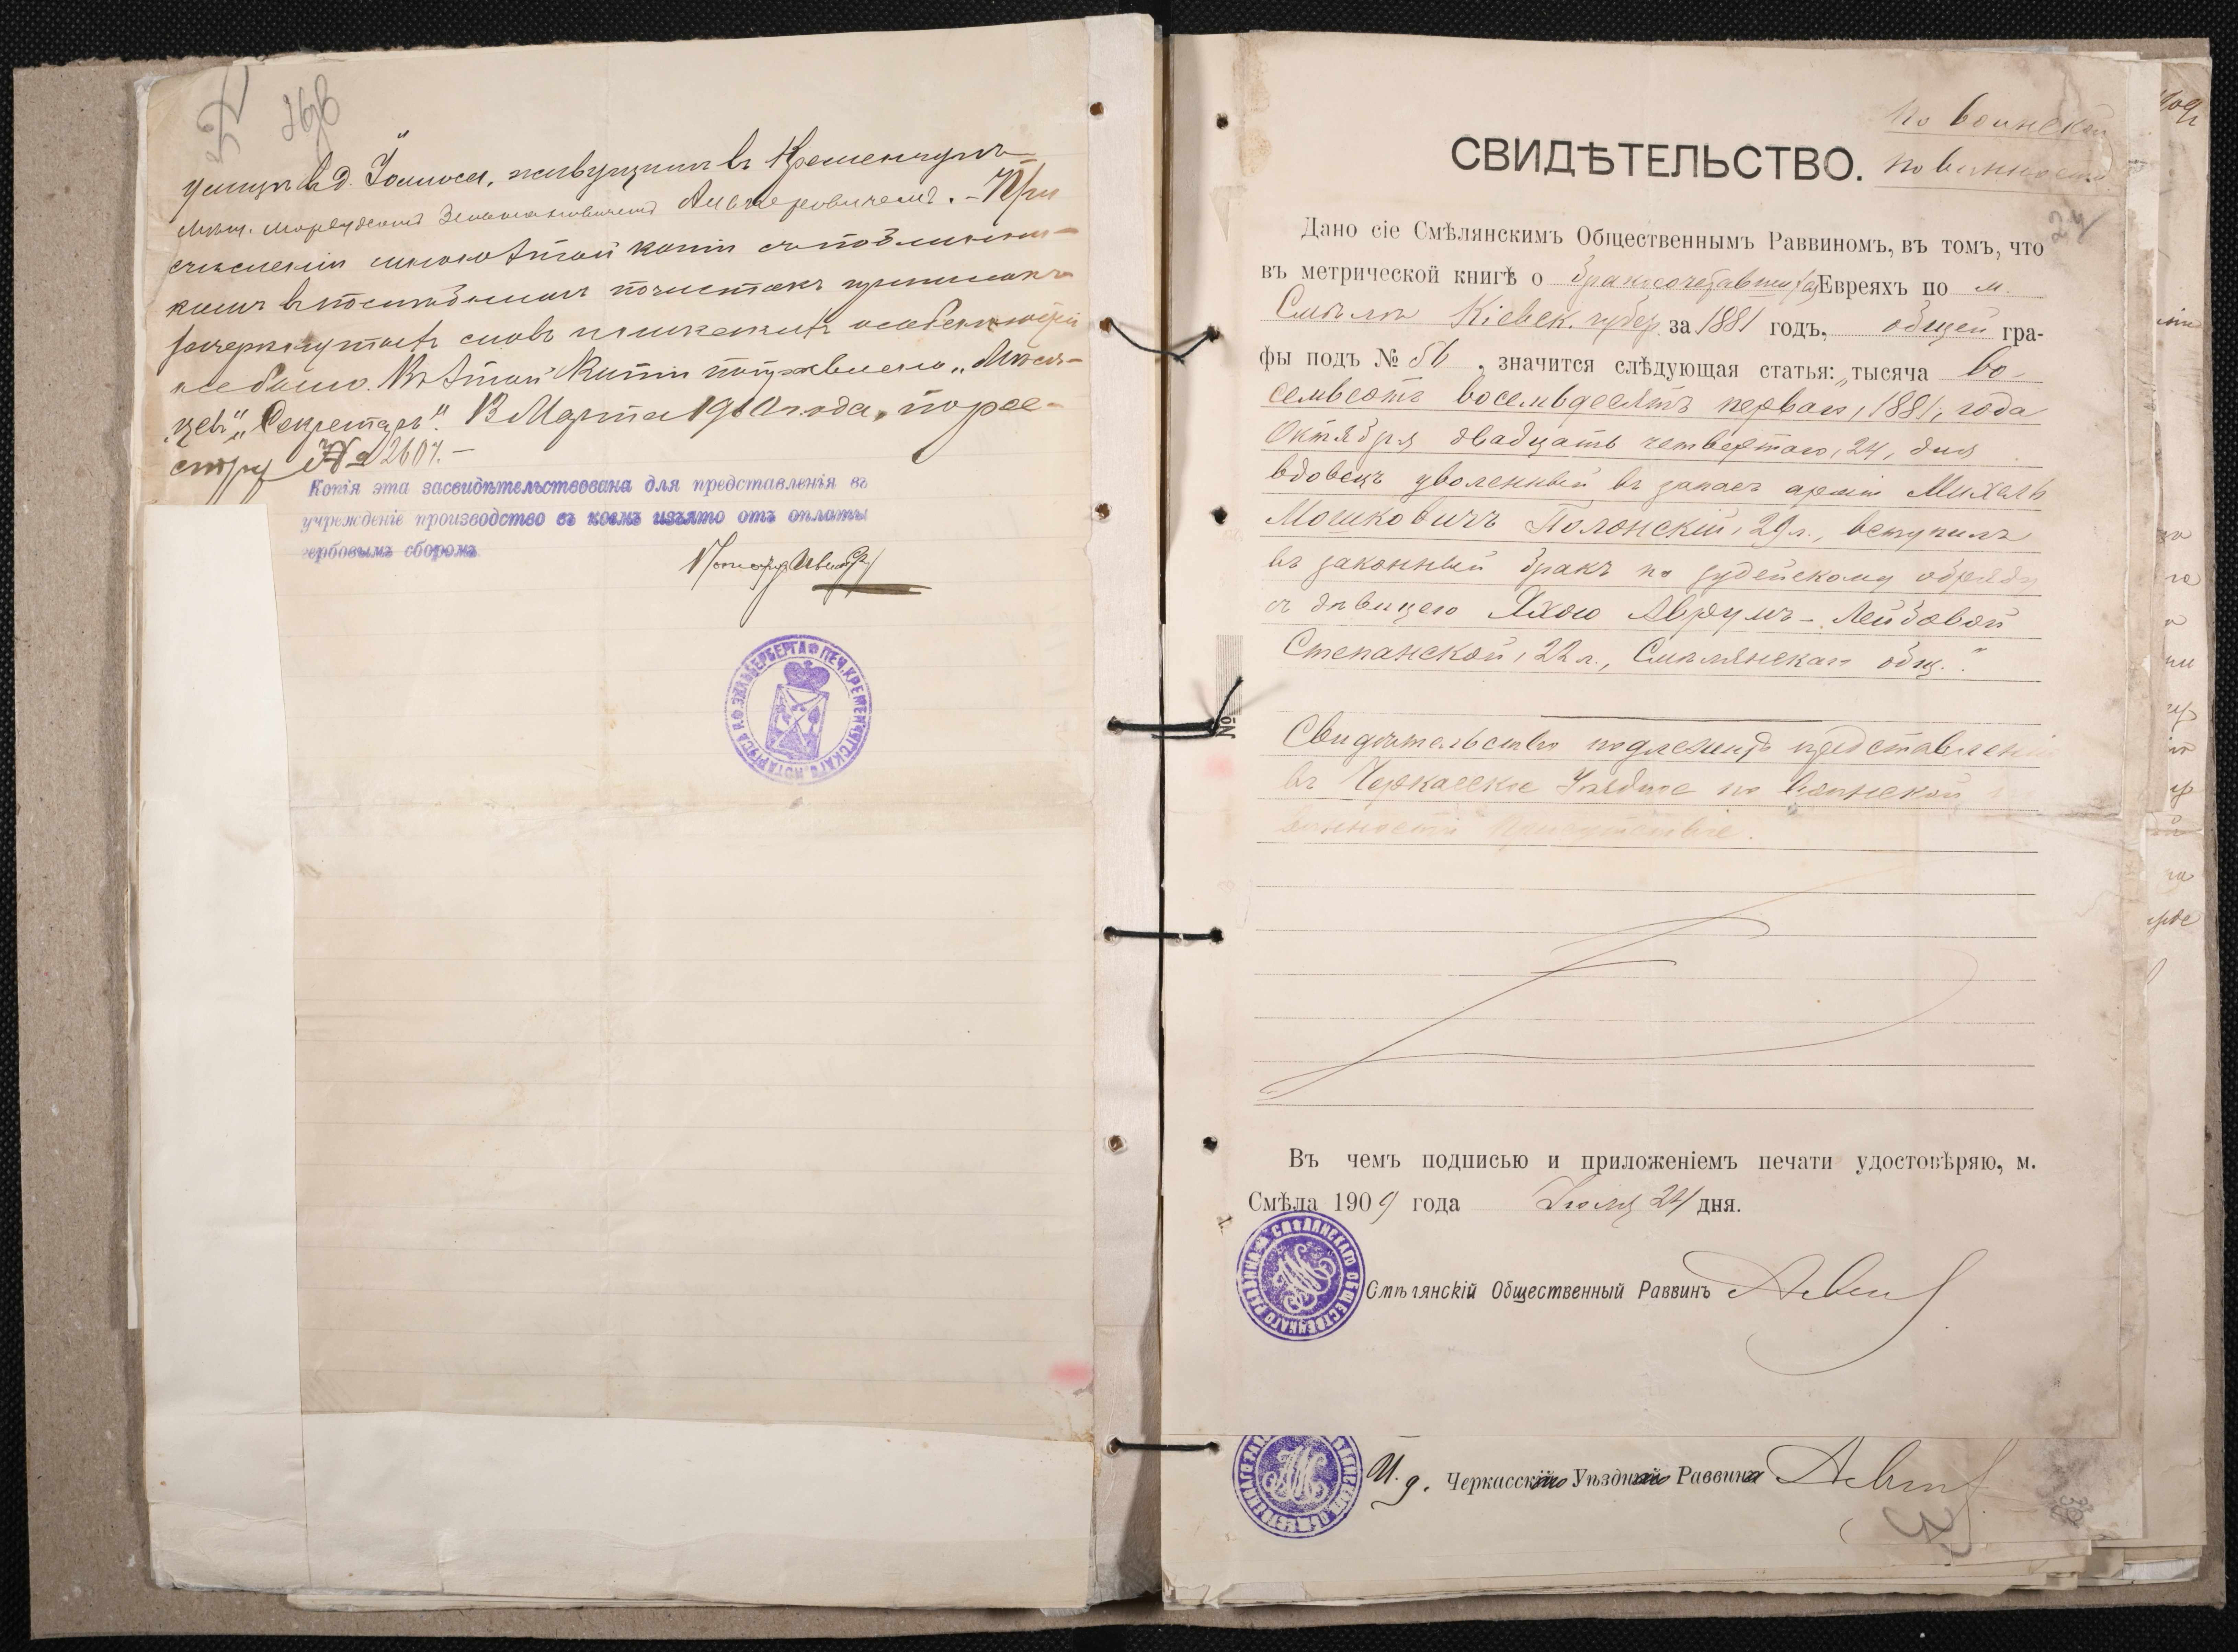 улицѣ в д. Іоллоса, живущимъ въ Кременчугѣ
мѣщ. Мордухомъ
При
сличеніи мною этой копіи съ подлинни-
комъ въ послѣднемъ почистокъ приписокъ
зачеркнутыхъ словъ и никакихъ особенностей
не было. Въ этой копіи
цевъ", "Секретарь". Марта 1910 года, по рее-
стру № 2607.-
Копія эта засвидѣтельствована для представленія въ
учрежденіе производство въ коемъ изъято отъ оплаты
гербовымъ сборомъ
Нотаріусъ
ПЕЧ. КРЕМЕНЧУГСКАГО НОТАРІУСА И.Ф. ЗИЛЬБЕРБЕРГА
По воинской
повинности
СВИДѢТЕЛЬСТВО.
24
Дано сіе Смѣлянскимъ Общественнымъ Раввиномъ, въ томъ, что
въ метрической книгѣ о бракосочетавшихся Евреяхъ по м.
Смѣлѣ Кіевск. губер. за 1881 годъ, общей гра-
фы подъ № 56, значится слѣдующая статья: „тысяча во-
семьсотъ восемьдесятъ перваго, 1881, года
Октября двадцать четвертаго, 24, дня
вдовецъ уволенный въ запасъ арміи Михель
Мошковичъ Полонскій, 29 л., вступилъ
въ законный бракъ по іудейскому обряду
съ дѣвицею Яхою Аврумъ-Лейбовой
Степанской, 22 л., Смѣлянскаго общ."
№
Свидѣтельство подлежитъ представленію
въ Черкасское Уѣздное по воинской
винности Присутствіе.
Въ чемъ подписью и приложеніемъ печати удостовѣряю, м.
Смѣла 1909 года Іюля 24 дня.
СМѢЛЯНСКАГО ОБЩЕСТВЕННАГО РАВВИНА
Смѣлянскій Общественный Раввинъ
И. д. Черкасскаго Уѣзднаго Раввина